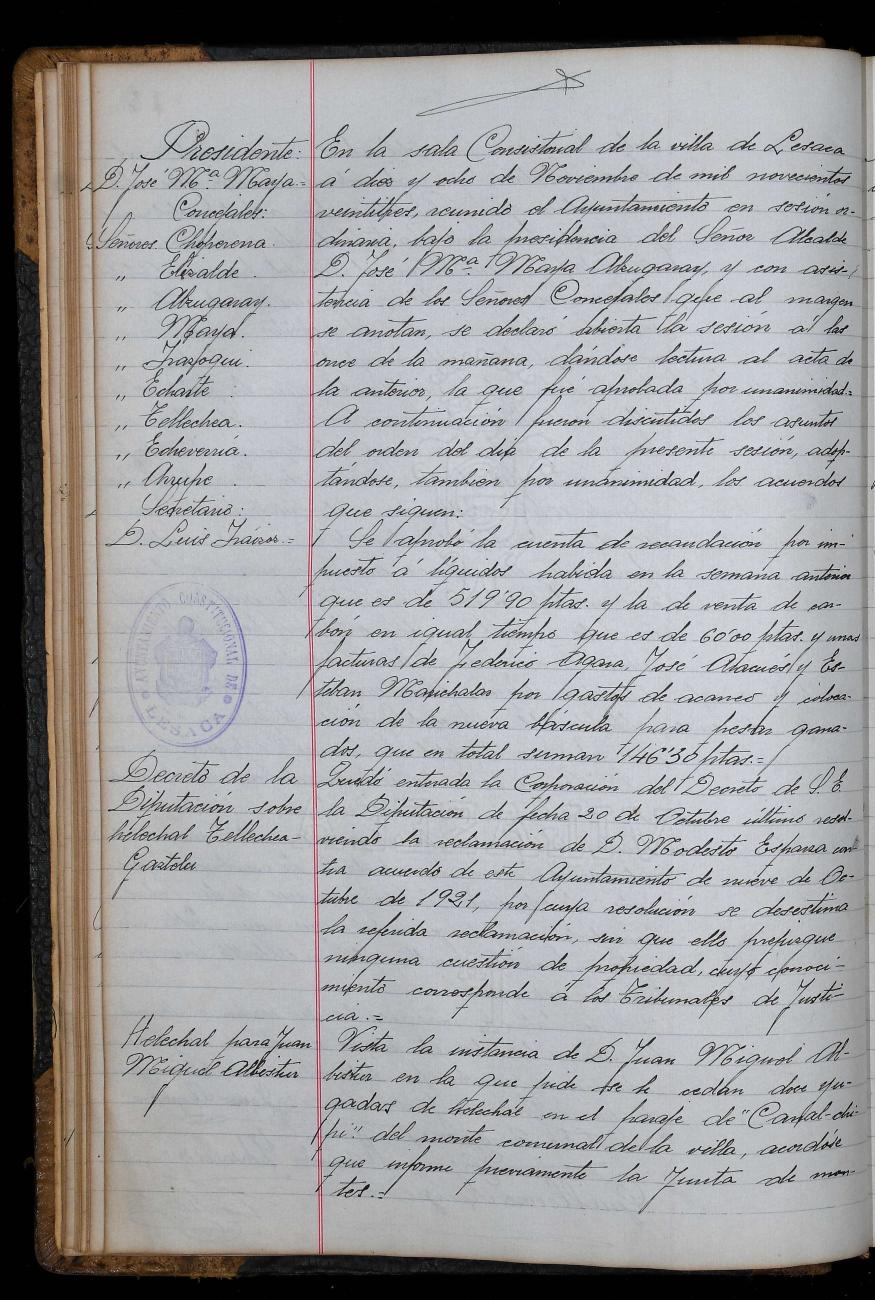 Presidente:
D. José Mª Maya.=
Concejales:
Señores. Choperena.
„ Elizalde.
„ Alzugaray.
„ Maya.
„ Irazoqui.
„ Echarte.
„ Tellechea.
„ Echeverría.
„ Arrupe.
Secretario:
D. Luis Iráizoz.=
AYUNTAMIENTO CONSTITUCIONAL DE
LESACA
Decreto de la
Diputación sobre
helechal Tellechea-
Gaztelu
Helechal para Juan
Miguel Albistur
En la sala Consistorial de la villa de Lesaca
á diez y ocho de Noviembre de mil novecientos
veintitres, reunido el Ayuntamiento en sesión or-
dinaria, bajo la presidencia del Señor Alcalde
D. José Mª Maya Alzugaray, y con asis-
tencia de los Señores Concejales que al margen
se anotan, se declaró abierta la sesión á las
once de la mañana, dandose lectura al acta de
la anterior, la que fué aprobada por unanimidad.=
A continuación fueron discutidos los asuntos
del orden del día de la presente sesión, adop-
tándose, tambien por unanimidad, los acuerdos
que siguen:
Se aprobó la cuenta de recaudación por im-
puesto á líquidos habida en la semana anterior
que es de 519'90 ptas. y la de venta de car-
bón en igual tiempo que es de 60'00 ptas. y unas
facturas de Federico José y Es-
teban Marichalar por gastos de acarreo y coloca-
ción de la nueva báscula para pesar gana-
dos, que en total suman 146'30 ptas.=
Quedó enterada la Corporación del Decreto de S.E.
la Diputación de fecha 20 de Octubre último resol-
viendo la reclamación de D. Modesto Esparza con-
tra acuerdo de este Ayuntamiento de nueve de Oc-
tubre de 1921, por cuya resolución se desestima
la referida reclamación, sin que ello prejuzgue
ninguna cuestión de propiedad, cuyo conoci-
miento corresponde á los Tribunales de Justi-
cia.=
Vista la instancia de D. Juan Miguel Al-
bistur en la que pide se le cedan doce yu-
gadas de helechal en el paraje de "
del monte comunal de la villa, acordóse
que informe previamente la Junta de mon-
tes.=